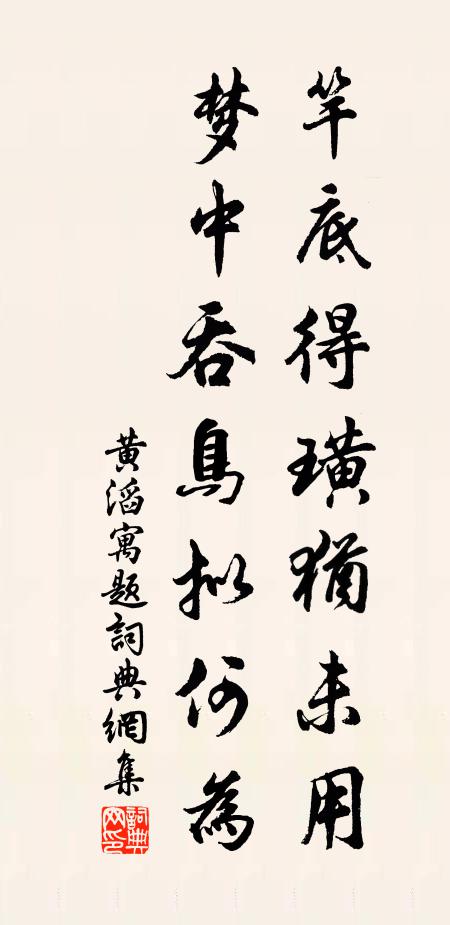 竿底得璜猶未用
梦中吞鳥拟何為
黄滔寓題詞典網集
詞典网印